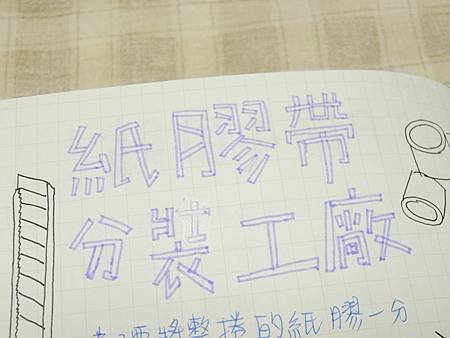 紙膠帶
分裝工廠
要將整捲的紙膠一分